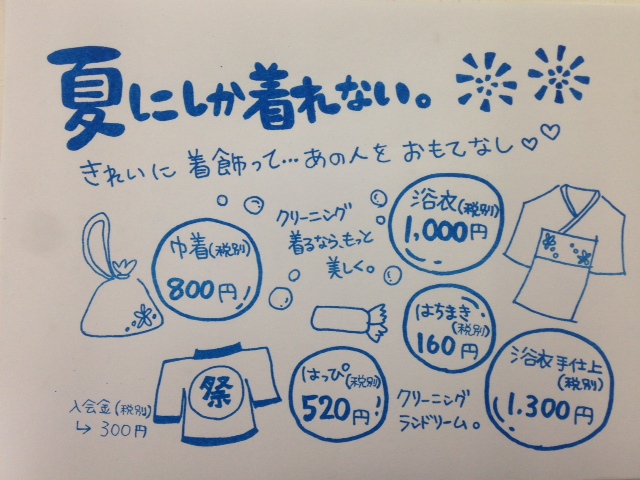 夏にしか着れない。
きれいに着飾って…あの人をおもてなし♡♡
クリーニング
着るなら、もっと
美しく。
浴衣(税別)
1,000円
巾着(税別)
800円
はちまき
(税別)
160円
祭
はっぴ(税別)
520円
浴衣手仕上
(税別)
1.300円
入会金(税別)
↳300円
クリーニング
ランドリーム。